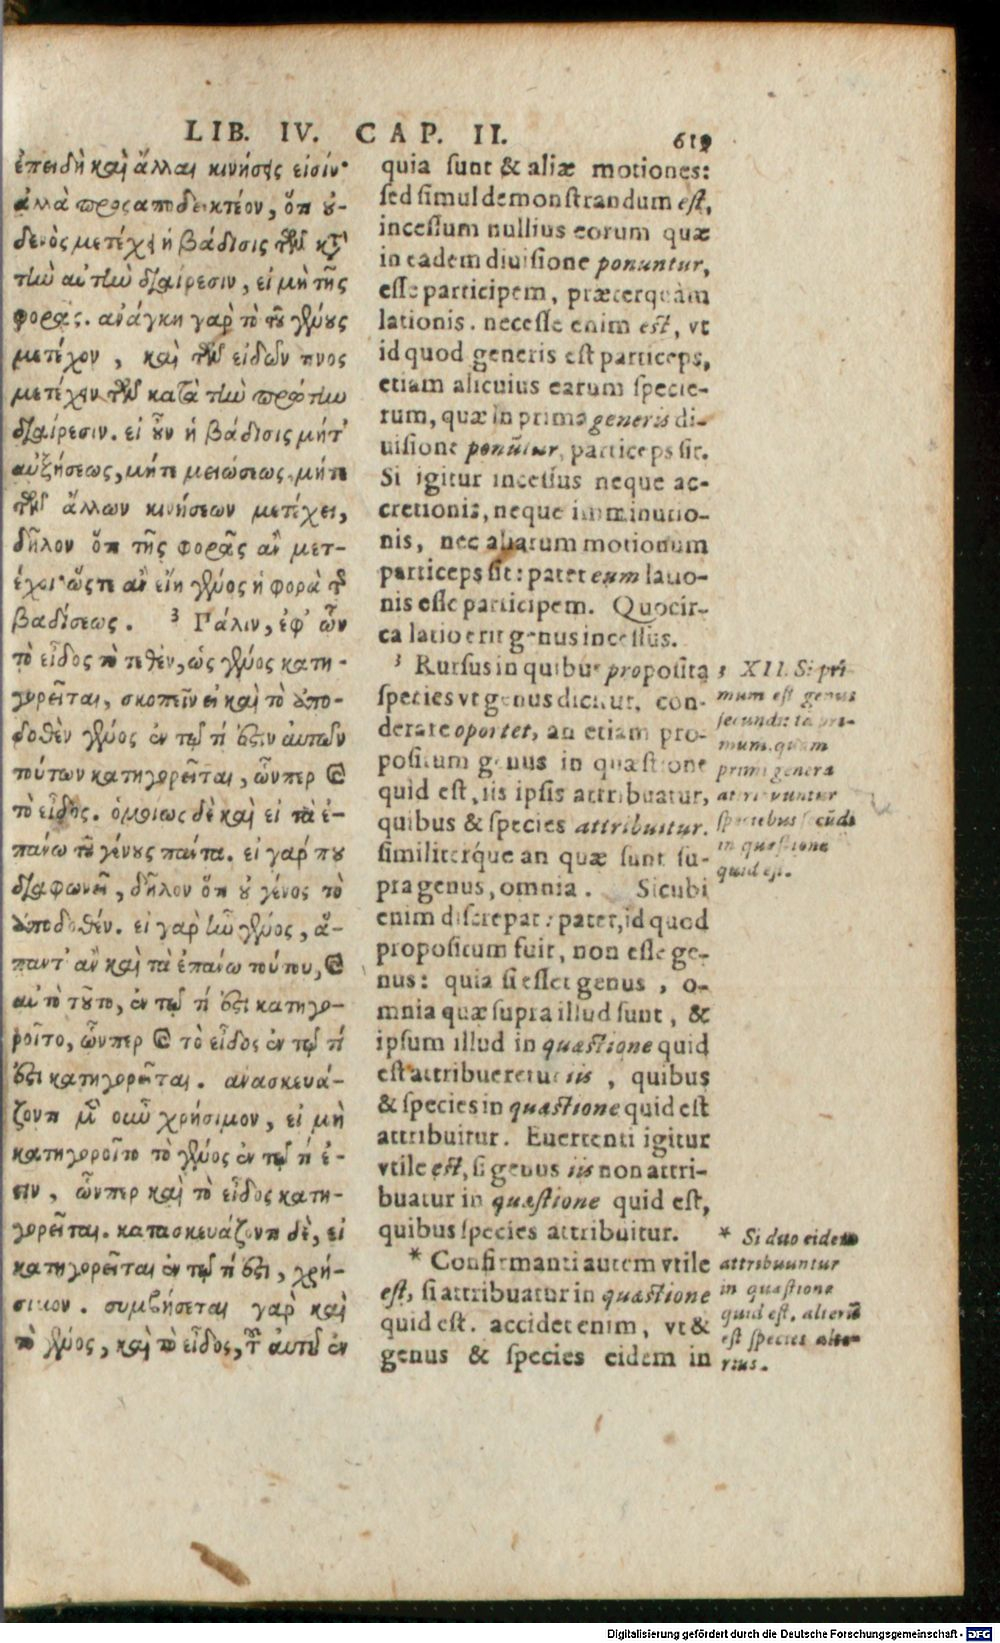 LIB. IV. CAP. II. 619
ἐπειδὴ καὶ ἄλλαι κινήσεις εἰσίν·
ἀλλὰ προςαποδεικτέον, ὅτι οὐ-
δενὸς μετέχει ἡ βάδισις τῶν κατὰ
τὴν αὐτὴν διαίρεσιν, εἰ μὴ τῆς
φορᾶς. ἀνάγκη γὰρ τὸ τοῦ γένους
μετέχον, καὶ τῶν εἰδῶν τινος
μετέχειν τῶν κατὰ τὴν πρώτην
διαίρεσιν. εἰ οὖν ἡ βάδισις μήτ'
αὐξήσεως, μήτε μειώσεως, μήτε
τῶν ἄλλων κινήσεων μετέχει,
δῆλον ὅτι τῆς φορᾶς ἂν μετ-
έχοι· ὥςτε ἂν εἴη γένος ἡ φορὰ τῆς
βαδίσεως. 3 Πάλιν, ἐφ' ὧν
τὸ εἶδος τὸ τεθὲν, ὡς γένος κατη-
γορεῖται, σκοπεῖν εἰ καὶ τὸ ὑπο-
δοθὲν γένος ἐν τῷ τί ἐστιν αὐτῶν
τούτων κατηγορεῖται, ὧνπερ καὶ
τὸ εἶδος. ὁμοίως δὲ καὶ εἰ τὰ ἐ-
πάνω τοῦ γένους πάντα. εἰ γάρ που
διαφωνεῖ, δῆλον ὅτι οὐ γένος τὸ
ἀποδοθέν. εἰ γὰρ ἦν γένος, ἅ-
παντ' ἂν καὶ τὰ ἐπάνω τούτου, καὶ
αὐτὸ τοῦτο, ἐν τῷ τί ἐστι κατηγο-
ροῖτο, ὧνπερ καὶ τὸ εἶδος ἐν τῷ τί
ἐστι κατηγορεῖται. ἀνασκευά-
ζοντι μὲν οὖν χρήσιμον, εἰ μὴ
κατηγοροῖτο τὸ γένος ἐν τῷ τί ἐ-
στιν, ὧνπερ καὶ τὸ εἶδος κατη-
γορεῖται. κατασκευάζοντι δὲ, εἰ
κατηγορεῖται ἐν τῷ τί ἐστι, χρή-
σιμον. συμβήσεται γὰρ καὶ
τὸ γένος, καὶ τὸ εἶδος, τοῦ αὐτοῦ ἐν
quia sunt & aliæ motiones:
sed simul demonstrandum est,
incessum nullius eorum quæ
in eadem diuisione ponuntur,
esse participem, præterquàm
lationis. necesse enim est, vt
id quod generis est particeps,
etiam alicuius earum specie-
rum, quæ in prima generis di-
uisione ponũtur, particeps sit.
Si igitur incessus neque ac-
cretionis, neque imminutio-
nis, nec aliarum motionum
particeps sit: patet eum latio-
nis esse participem. Quocir-
ca latio erit genus incessus.
3 Rursus in quibus proposita
species vt genus dicitur, con-
derare oportet, an etiam pro-
positum genus in quæstione
quid est, iis ipsis attribuatur,
quibus & species attribuitur.
similiterque an quæ sunt su-
pra genus, omnia. Sicubi
enim discrepat: patet, id quod
propositum fuit, non esse ge-
nus: quia si esset genus, o-
mnia quæ supra illud sunt, &
ipsum illud in quæstione quid
est attribueretur iis, quibus
& species in quæstione quid est
attribuitur. Euertenti igitur
vtile est, si genus iis non attri-
buatur in quæstione quid est,
quibus species attribuitur.
* Confirmanti autem vtile
est, si attribuatur in quæstione
quid est. accidet enim, vt &
genus & species eidem in
3 XII. Si pri-
mum est genus
secundi: tā pri-
mum, quam
primi genera
attribuuntur
speciebus secūdi
in quæstione
quid est.
* Si duo eidem
attribuuntur
in quæstione
quid est, alterū
est species alte-
rius.
Digitalisierung gefördert durch die Deutsche Forschungsgemeinschaft - DFG